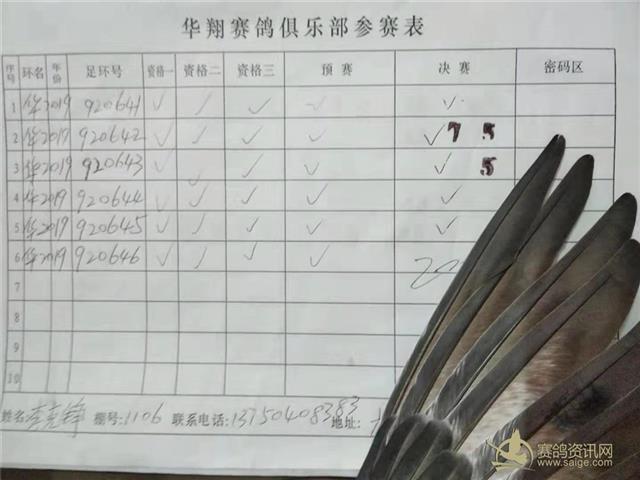 华翔赛鸽俱乐部参赛表
序号 环名 年份 足环号 资格一 资格二 资格三 预赛 决赛 密码区
1 华 2019 920641 ✓ ✓ ✓ ✓ ✓
2 华 2019 920642 ✓ ✓ ✓ ✓ ✓ 7 5
3 华 2019 920643 ✓ ✓ ✓ ✓ 5
4 华 2019 920644 ✓ ✓ ✓ ✓ ✓
5 华 2019 920645 ✓ ✓ ✓ ✓ ✓
6 华 2019 920646 ✓ ✓ ✓ ✓ 20
7
8
9
10
姓名 李 锋 棚号:1106 联系电话:13750408383 地址:
赛鸽资讯网
www.saige.com